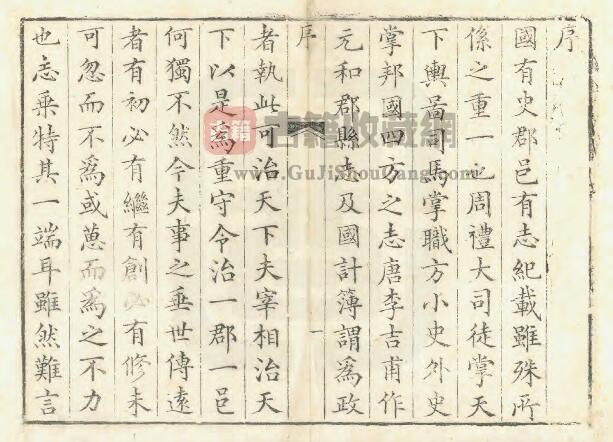 序
國有史郡邑有志紀載雖殊所
係之重一也周禮大司徒掌天
下輿啚司馬掌職方小史外史
掌邦國四方之志唐李吉甫作
元和郡縣志及國計簿謂為政
序
一
者執此可治天下夫宰相治天
下以是為重守令治一郡一邑
何獨不然今夫事之垂世傳遠
者有初必有繼有創必有修未
可忽而不為或蒽而為之不力
也志乗特其一端耳雖然難言
古籍 古籍收藏網
www.GuJiShouCang.com